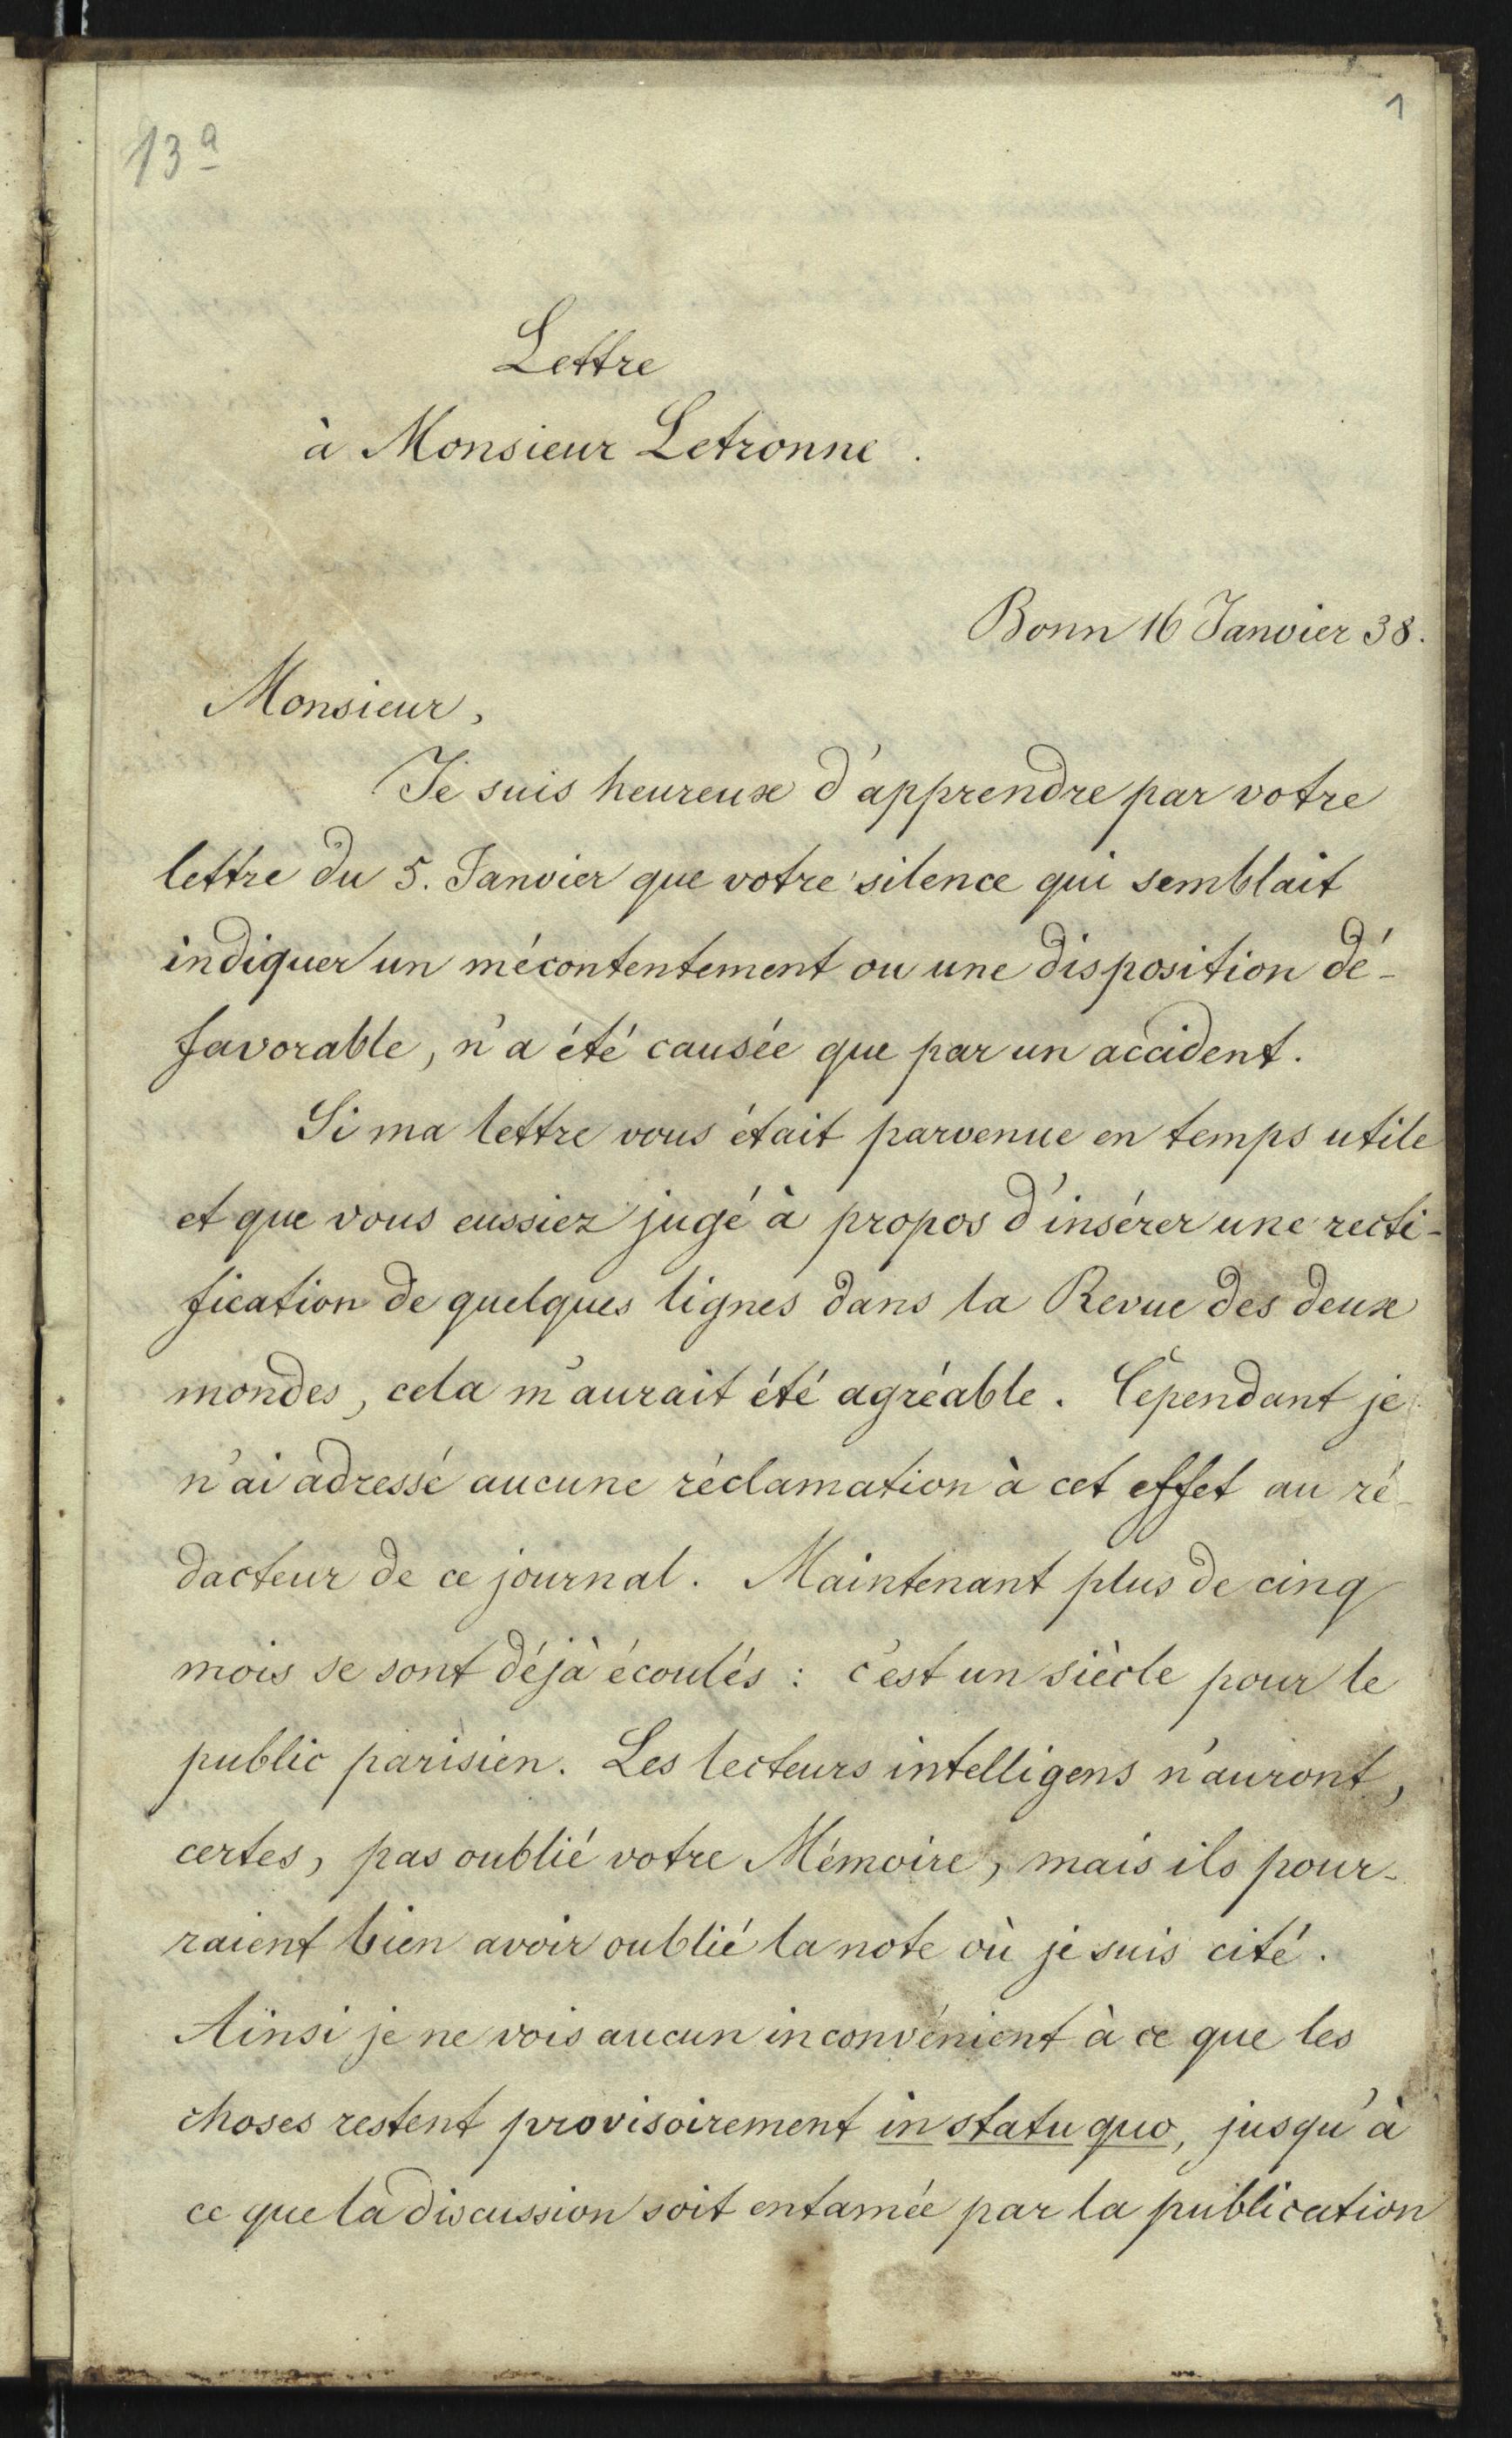 13a
1
Lettre
à Monsieur Letronne.
Bonn 16 Janvier 38.
Monsieur,
Je suis heureux d'apprendre par votre
lettre du 5. Janvier que votre silence qui semblait
indiquer un mécontentement ou une disposition dé-
favorable, n'a été causée que par un accident.
Si ma lettre vous était parvenue en temps utile
et que vous eussiez jugé à propos d'insérer une recti-
fication de quelques lignes dans la Revue des deux
mondes, cela m'aurait été agréable. Cependant je
n'ai adressé aucune réclamation à cet effet au ré-
dacteur de ce journal. Maintenant plus de cinq
mois se sont déjà écoulés : c'est un siècle pour le
public parisien. Les lecteurs intelligens n'auront,
certes, pas oublié votre Mémoire, mais ils pour-
raient bien avoir oublié la note où je suis cité.
Ainsi je ne vois aucun inconvénient à ce que les
choses restent provisoirement in statu quo, jusqu'à
ce que la discussion soit entamée par la publication